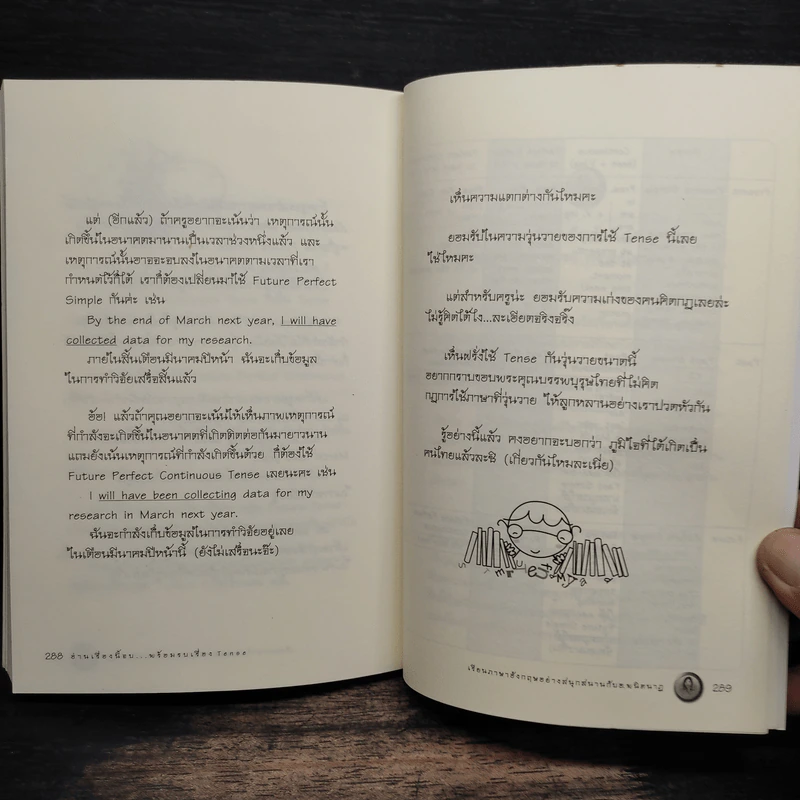 แต่ (อีกแล้ว) ถ้าครูอยากจะเน้นว่า เหตุการณ์นั้น
เกิดขึ้นในอนาคตมานานเป็นเวลาช่วงหนึ่งแล้ว และ
เหตุการณ์นั้นอาจจะจบลงในอนาคตตามเวลาที่เรา
กำหนดไว้ก็ได้ เราก็ต้องเปลี่ยนมาใช้ Future Perfect
Simple กันค่ะ เช่น
By the end of March next year, I will have
collected data for my research.
ภายในสิ้นเดือนมีนาคมปีหน้า ฉันจะเก็บข้อมูล
ในการทำวิจัยเสร็จสิ้นแล้ว
อ้อ! แล้วถ้าคุณอยากจะเน้นให้เห็นภาพเหตุการณ์
ที่กำลังจะเกิดขึ้นในอนาคตที่เกิดติดต่อกันมายาวนาน
แถมยังเน้นเหตุการณ์ที่กำลังเกิดขึ้นด้วย ก็ต้องใช้
Future Perfect Continuous Tense เลยนะคะ เช่น
I will have been collecting data for my
research in March next year.
ฉันจะกำลังเก็บข้อมูลในการทำวิจัยอยู่เลย
ในเดือนมีนาคมปีหน้านี้ (ยังไม่เสร็จนะจ๊ะ)
288 อ่านเรื่องนี้จบ....พร้อมรบเรื่อง Tense
เห็นความแตกต่างกันไหมคะ
ยอมรับในความวุ่นวายของการใช้ Tense นี้เลย
ใช่ไหมคะ
แต่สำหรับครูน่ะ ยอมรับความเก่งของคนคิดกฎเลยล่ะ
ไม่รู้คิดได้ไง...ละเอียดจริงจริ๊ง
เห็นฝรั่งใช้ Tense กันวุ่นวายขนาดนี้
อยากกราบขอบพระคุณบรรพบุรุษไทยที่ไม่คิด
กฎการใช้ภาษาที่วุ่นวาย ให้ลูกหลานอย่างเราปวดหัวกัน
รู้อย่างนี้แล้ว คงอยากจะบอกว่า ภูมิใจที่ได้เกิดเป็น
คนไทยแล้วละซิ (เกี่ยวกันไหมละเนี่ย)
เรียนภาษาอังกฤษอย่างสนุกสนานกับอ.พนิตนาฏ 289